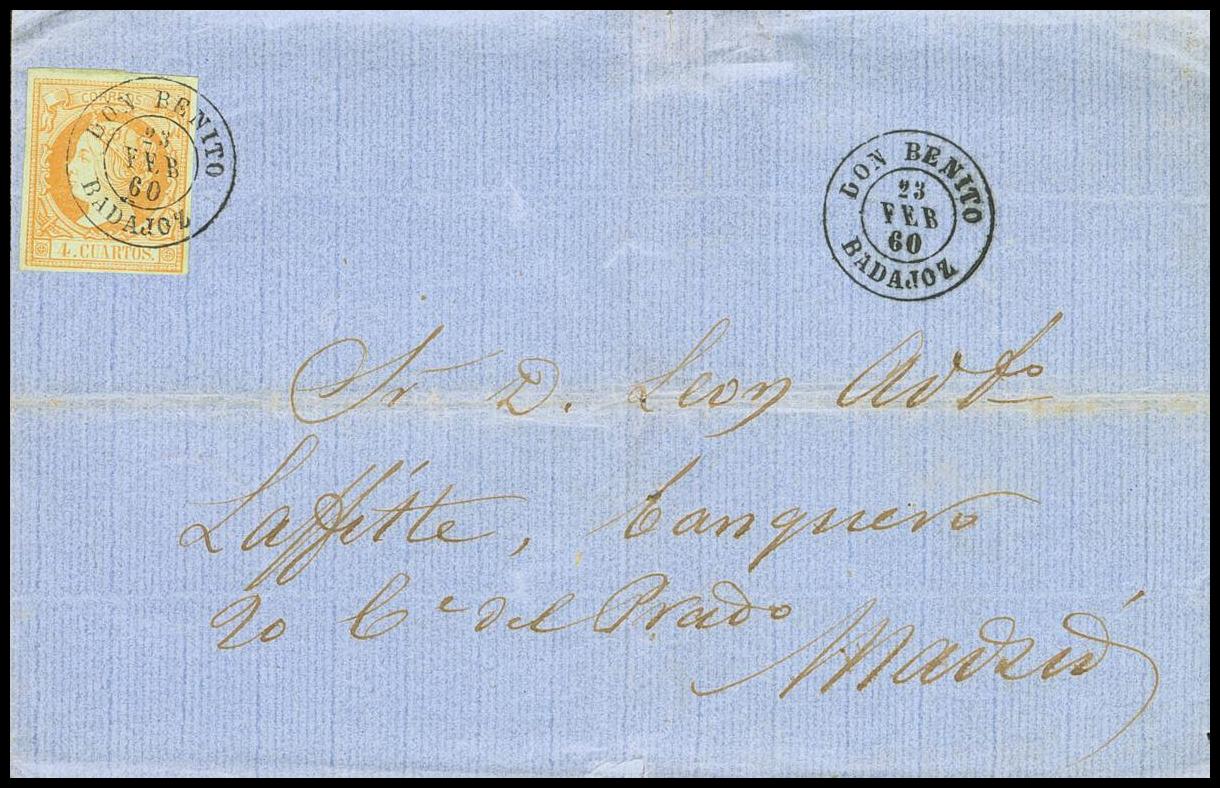 CORREOS
4. CUARTOS.
DON BENITO
23
FEB
60
BADAJOZ
DON BENITO
23
FEB
60
BADAJOZ
Sr D. Leon Adfo
Laffitte, banquero
20 Ce del Prado
Madrid